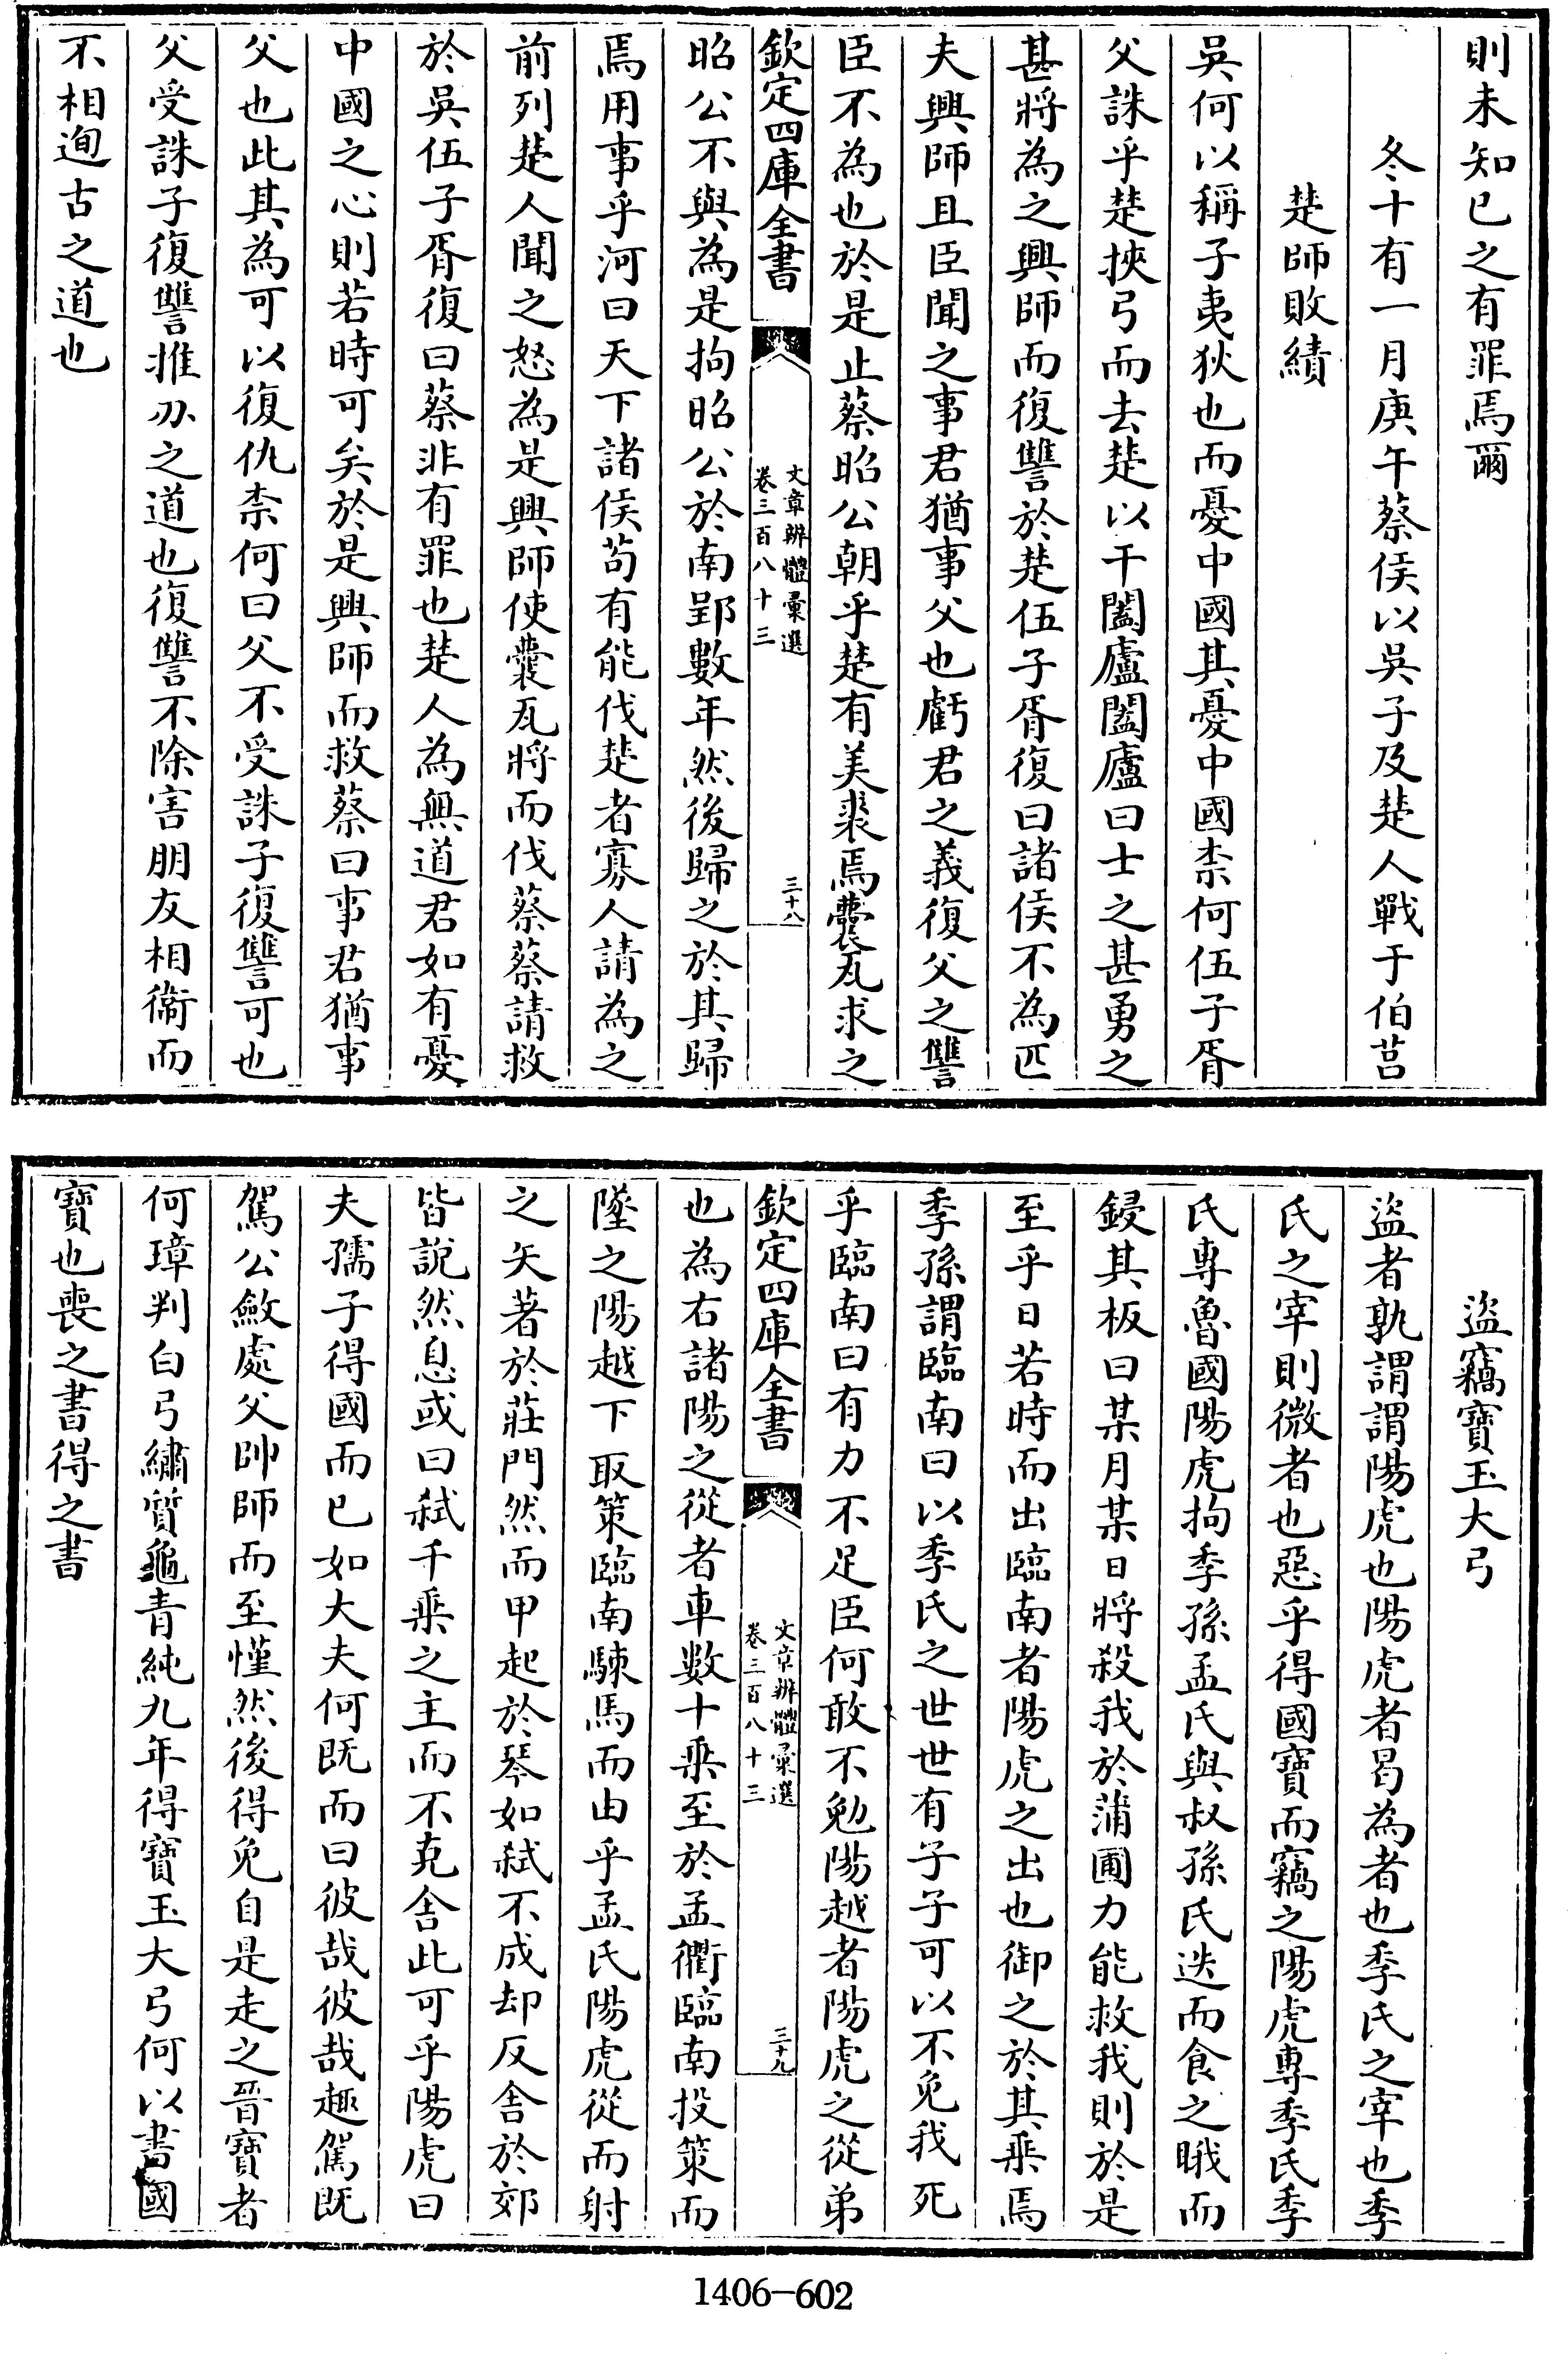 則未知已之有罪焉爾
冬十有一月庚午蔡侯以吳子及楚人戰于伯莒
楚師敗績
吳何以稱子夷狄也而憂中國其憂中國柰何伍子胥
父誅乎楚挾弓而去楚以干闔廬闔廬曰士之甚勇之
甚將為之興師而復讐於楚伍子胥復曰諸侯不為匹
夫興師且臣聞之事君猶事父也虧君之義復父之讐
臣不為也於是止蔡昭公朝乎楚有美裘焉囊瓦求之
欽定四庫全書
文章辨體彙選
卷三百八十三
三十八
昭公不與為是拘昭公於南郢數年然後歸之於其歸
焉用事乎河曰天下諸侯茍有能伐楚者寡人請為之
前列楚人聞之怒為是興師使囊瓦將而伐蔡蔡請救
於吳伍子胥復曰蔡非有罪也楚人為無道君如有憂
中國之心則若時可矣於是興師而救蔡曰事君猶事
父也此其為可以復仇柰何曰父不受誅子復讐可也
父受誅子復讐推刅之道也復讐不除害朋友相衞而
不相迿古之道也
盜竊寶玉大弓
盜者孰謂謂陽虎也陽虎者曷為者也季氏之宰也季
氏之宰則微者也惡乎得國寶而竊之陽虎專季氏季
氏專魯國陽虎拘季孫孟氏與叔孫氏迭而食之睋而
鋟其板曰某月某日將殺我於蒲圃力能救我則於是
至乎日若時而出臨南者陽虎之出也御之於其乗焉
季孫謂臨南曰以季氏之世世有子子可以不免我死
乎臨南曰有力不足臣何敢不勉陽越者陽虎之從弟
欽定四庫全書
文章辨體彙選
卷三百八十三
三十九
也為右諸陽之從者車數十乗至於孟衢臨南投策而
墜之陽越下取策臨南駷馬而由乎孟氏陽虎從而射
之矢著於莊門然而甲起於琴如弑不成却反舍於郊
皆說然息或曰弑千乗之主而不克舍此可乎陽虎曰
夫孺子得國而已如大夫何既而曰彼哉彼哉趣駕既
駕公斂處父帥師而至慬然後得免自是走之晉寶者
何璋判白弓繡質龜青純九年得寶玉大弓何以書國
寶也喪之書得之書
1406-602